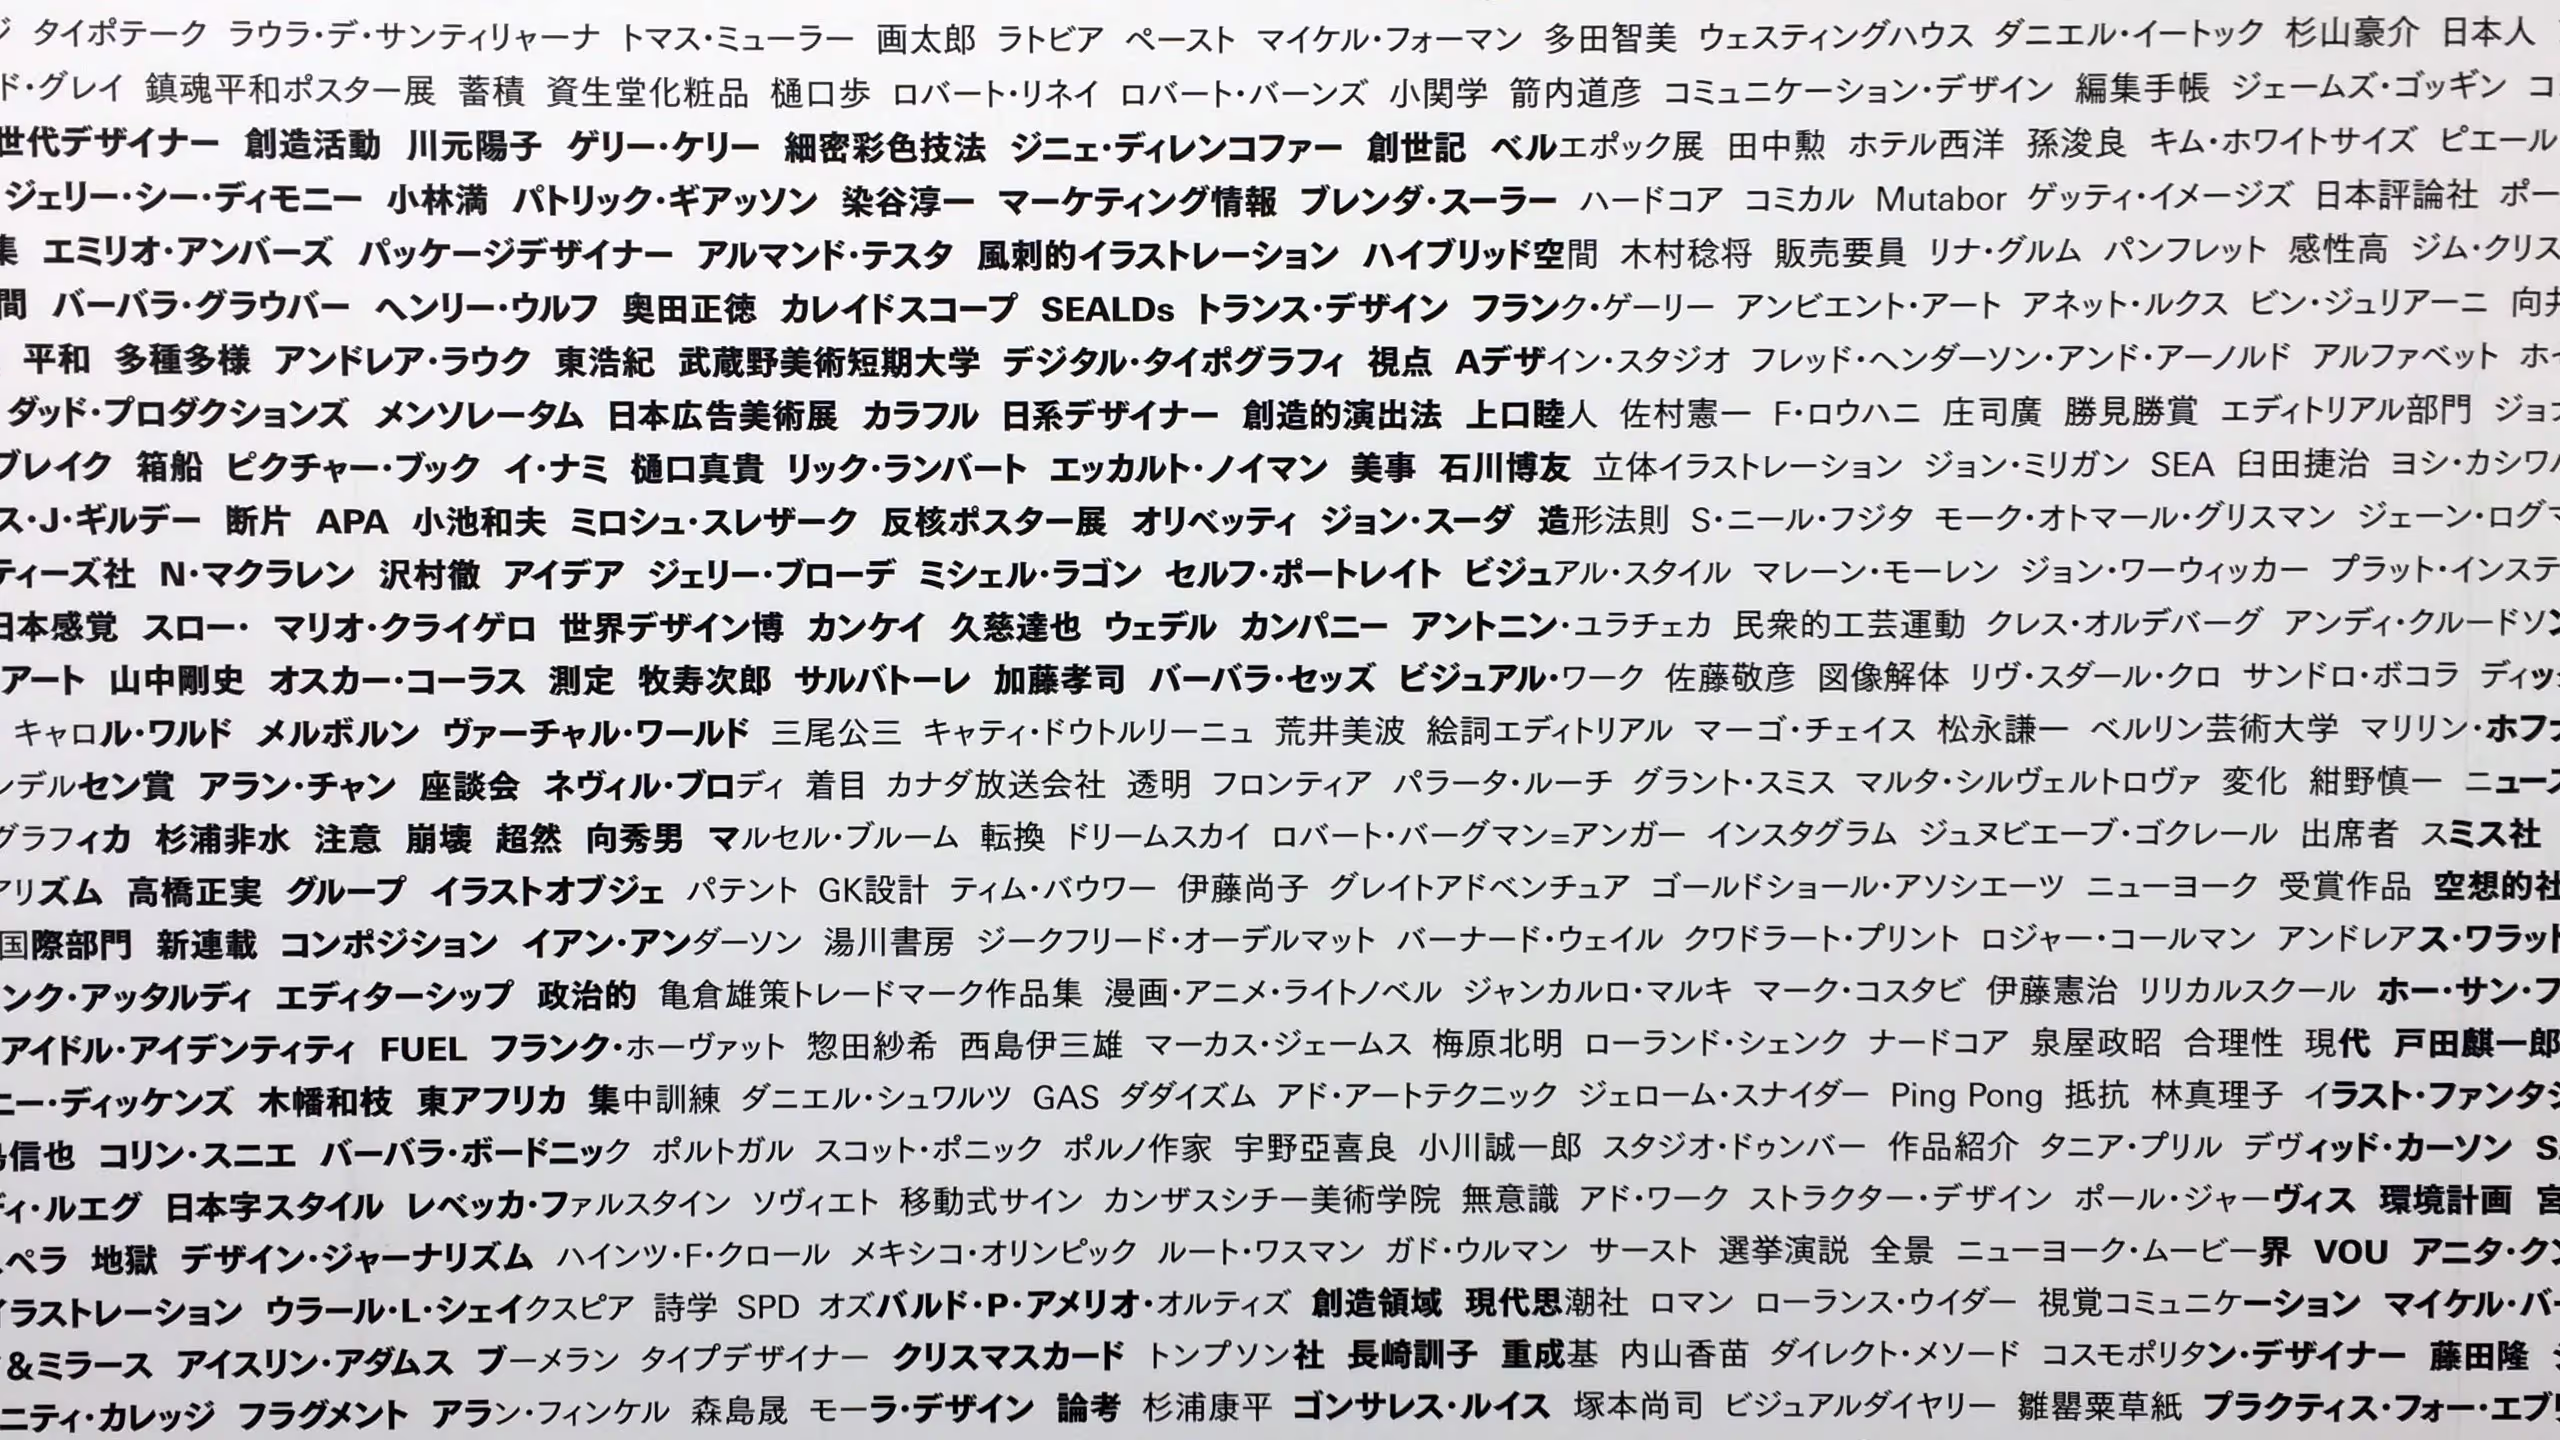 タイポテーク ラウラ・デ・サンティリャーナ トマス・ミューラー 画太郎 ラトビア ペースト マイケル・フォーマン 多田智美 ウェスティングハウス ダニエル・イートック 杉山豪介 日本人
ド・グレイ 鎮魂平和ポスター展 蓄積 資生堂化粧品 樋口歩 ロバート・リネイ ロバート・バーンズ 小関学 箭内道彦 コミュニケーション・デザイン 編集手帳 ジェームズ・ゴッギン コ
世代デザイナー 創造活動 川元陽子 ゲリー・ケリー 細密彩色技法 ジニェ・ディレンコファー 創世記 ベルエポック展 田中勲 ホテル西洋 孫浚良 キム・ホワイトサイズ ピエール
ジェリー・シー・ディモニー 小林満 パトリック・ギアッソン 染谷淳一 マーケティング情報 ブレンダ・スーラー ハードコア コミカル Mutabor ゲッティ・イメージズ 日本評論社 ポー
集 エミリオ・アンバーズ パッケージデザイナー アルマンド・テスタ 風刺的イラストレーション ハイブリッド空間 木村稔将 販売要員 リナ・グルム パンフレット 感性高 ジム・クリス
間 バーバラ・グラウバー ヘンリー・ウルフ 奥田正徳 カレイドスコープ SEALDs トランス・デザイン フランク・ゲーリー アンビエント・アート アネット・ルクス ビン・ジュリアーニ 向井
平和 多種多様 アンドレア・ラウク 東浩紀 武蔵野美術短期大学 デジタル・タイポグラフィ 視点 Aデザイン・スタジオ フレッド・ヘンダーソン・アンド・アーノルド アルファベット ホイ
ダッド・プロダクションズ メンソレータム 日本広告美術展 カラフル 日系デザイナー 創造的演出法 上口睦人 佐村憲一 F・ロウハニ 庄司廣 勝見勝賞 エディトリアル部門 ジョ
ブレイク 箱船 ピクチャー・ブック イ・ナミ 樋口真貴 リック・ランバート エッカルト・ノイマン 美事 石川博友 立体イラストレーション ジョン・ミリガン SEA 臼田捷治 ヨシ・カシワ
ス・J・ギルデー 断片 APA 小池和夫 ミロシュ・スレザーク 反核ポスター展 オリベッティ ジョン・スーダ 造形法則 S・ニール・フジタ モーク・オトマール・グリスマン ジェーン・ログマ
ティーズ社 N・マクラレン 沢村徹 アイデア ジェリー・ブローデ ミシェル・ラゴン セルフ・ポートレイト ビジュアル・スタイル マレーン・モーレン ジョン・ワーウィッカー プラット・インステ
日本感覚 スロー・ マリオ・クライゲロ 世界デザイン博 カンケイ 久慈達也 ウェデル カンパニー アントニン・ユラチェカ 民衆的工芸運動 クレス・オルデバーグ アンディ・クルードソン
アート 山中剛史 オスカー・コーラス 測定 牧寿次郎 サルバトーレ 加藤孝司 バーバラ・セッズ ビジュアル・ワーク 佐藤敬彦 図像解体 リヴ・スダール・クロ サンドロ・ボコラ ディッ
キャロル・ワルド メルボルン ヴァーチャル・ワールド 三尾公三 キャティ・ドウトルリーニュ 荒井美波 絵詞エディトリアル マーゴ・チェイス 松永謙一 ベルリン芸術大学 マリリン・ホフ
ンデルセン賞 アラン・チャン 座談会 ネヴィル・ブロディ 着目 カナダ放送会社 透明 フロンティア パラータ・ルーチ グラント・スミス マルタ・シルヴェルトロヴァ 変化 紺野慎一 ニュース
グラフィカ 杉浦非水 注意 崩壊 超然 向秀男 マルセル・ブルーム 転換 ドリームスカイ ロバート・バーグマン=アンガー インスタグラム ジュヌビエーブ・ゴクレール 出席者 スミス社
アリズム 高橋正実 グループ イラストオブジェ パテント GK設計 ティム・バウワー 伊藤尚子 グレイトアドベンチュア ゴールドショール・アソシエーツ ニューヨーク 受賞作品 空想的社
国際部門 新連載 コンポジション イアン・アンダーソン 湯川書房 ジークフリード・オーデルマット バーナード・ウェイル クワドラート・プリント ロジャー・コールマン アンドレアス・ワラッ
ンク・アッタルディ エディターシップ 政治的 亀倉雄策トレードマーク作品集 漫画・アニメ・ライトノベル ジャンカルロ・マルキ マーク・コスタビ 伊藤憲治 リリカルスクール ホー・サン・フ
アイドル・アイデンティティ FUEL フランク・ホーヴァット 惣田紗希 西島伊三雄 マーカス・ジェームス 梅原北明 ローランド・シェンク ナードコア 泉屋政昭 合理性 現代 戸田麒一郎
ニー・ディッケンズ 木幡和枝 東アフリカ 集中訓練 ダニエル・シュワルツ GAS ダダイズム アド・アートテクニック ジェローム・スナイダー Ping Pong 抵抗 林真理子 イラスト・ファンタジ
信也 コリン・スニエ バーバラ・ボードニック ポルトガル スコット・ポニック ポルノ作家 宇野亞喜良 小川誠一郎 スタジオ・ドゥンバー 作品紹介 タニア・プリル デヴィッド・カーソン S
ディ・ルエグ 日本字スタイル レベッカ・ファルスタイン ソヴィエト 移動式サイン カンザスシチー美術学院 無意識 アド・ワーク ストラクター・デザイン ポール・ジャーヴィス 環境計画 宮
ペラ 地獄 デザイン・ジャーナリズム ハインツ・F・クロール メキシコ・オリンピック ルート・ワスマン ガド・ウルマン サースト 選挙演説 全景 ニューヨーク・ムービー界 VOU アニタ・クン
イラストレーション ウラール・L・シェイクスピア 詩学 SPD オズバルド・P・アメリオ・オルティズ 創造領域 現代思潮社 ロマン ローランス・ウイダー 視覚コミュニケーション マイケル・バー
&ミラース アイスリン・アダムス ブーメラン タイプデザイナー クリスマスカード トンプソン社 長崎訓子 重成基 内山香苗 ダイレクト・メソード コスモポリタン・デザイナー 藤田隆
ニティ・カレッジ フラグメント アラン・フィンケル 森島晟 モーラ・デザイン 論考 杉浦康平 ゴンサレス・ルイス 塚本尚司 ビジュアルダイヤリー 雛罌粟草紙 プラクティス・フォー・エブリ